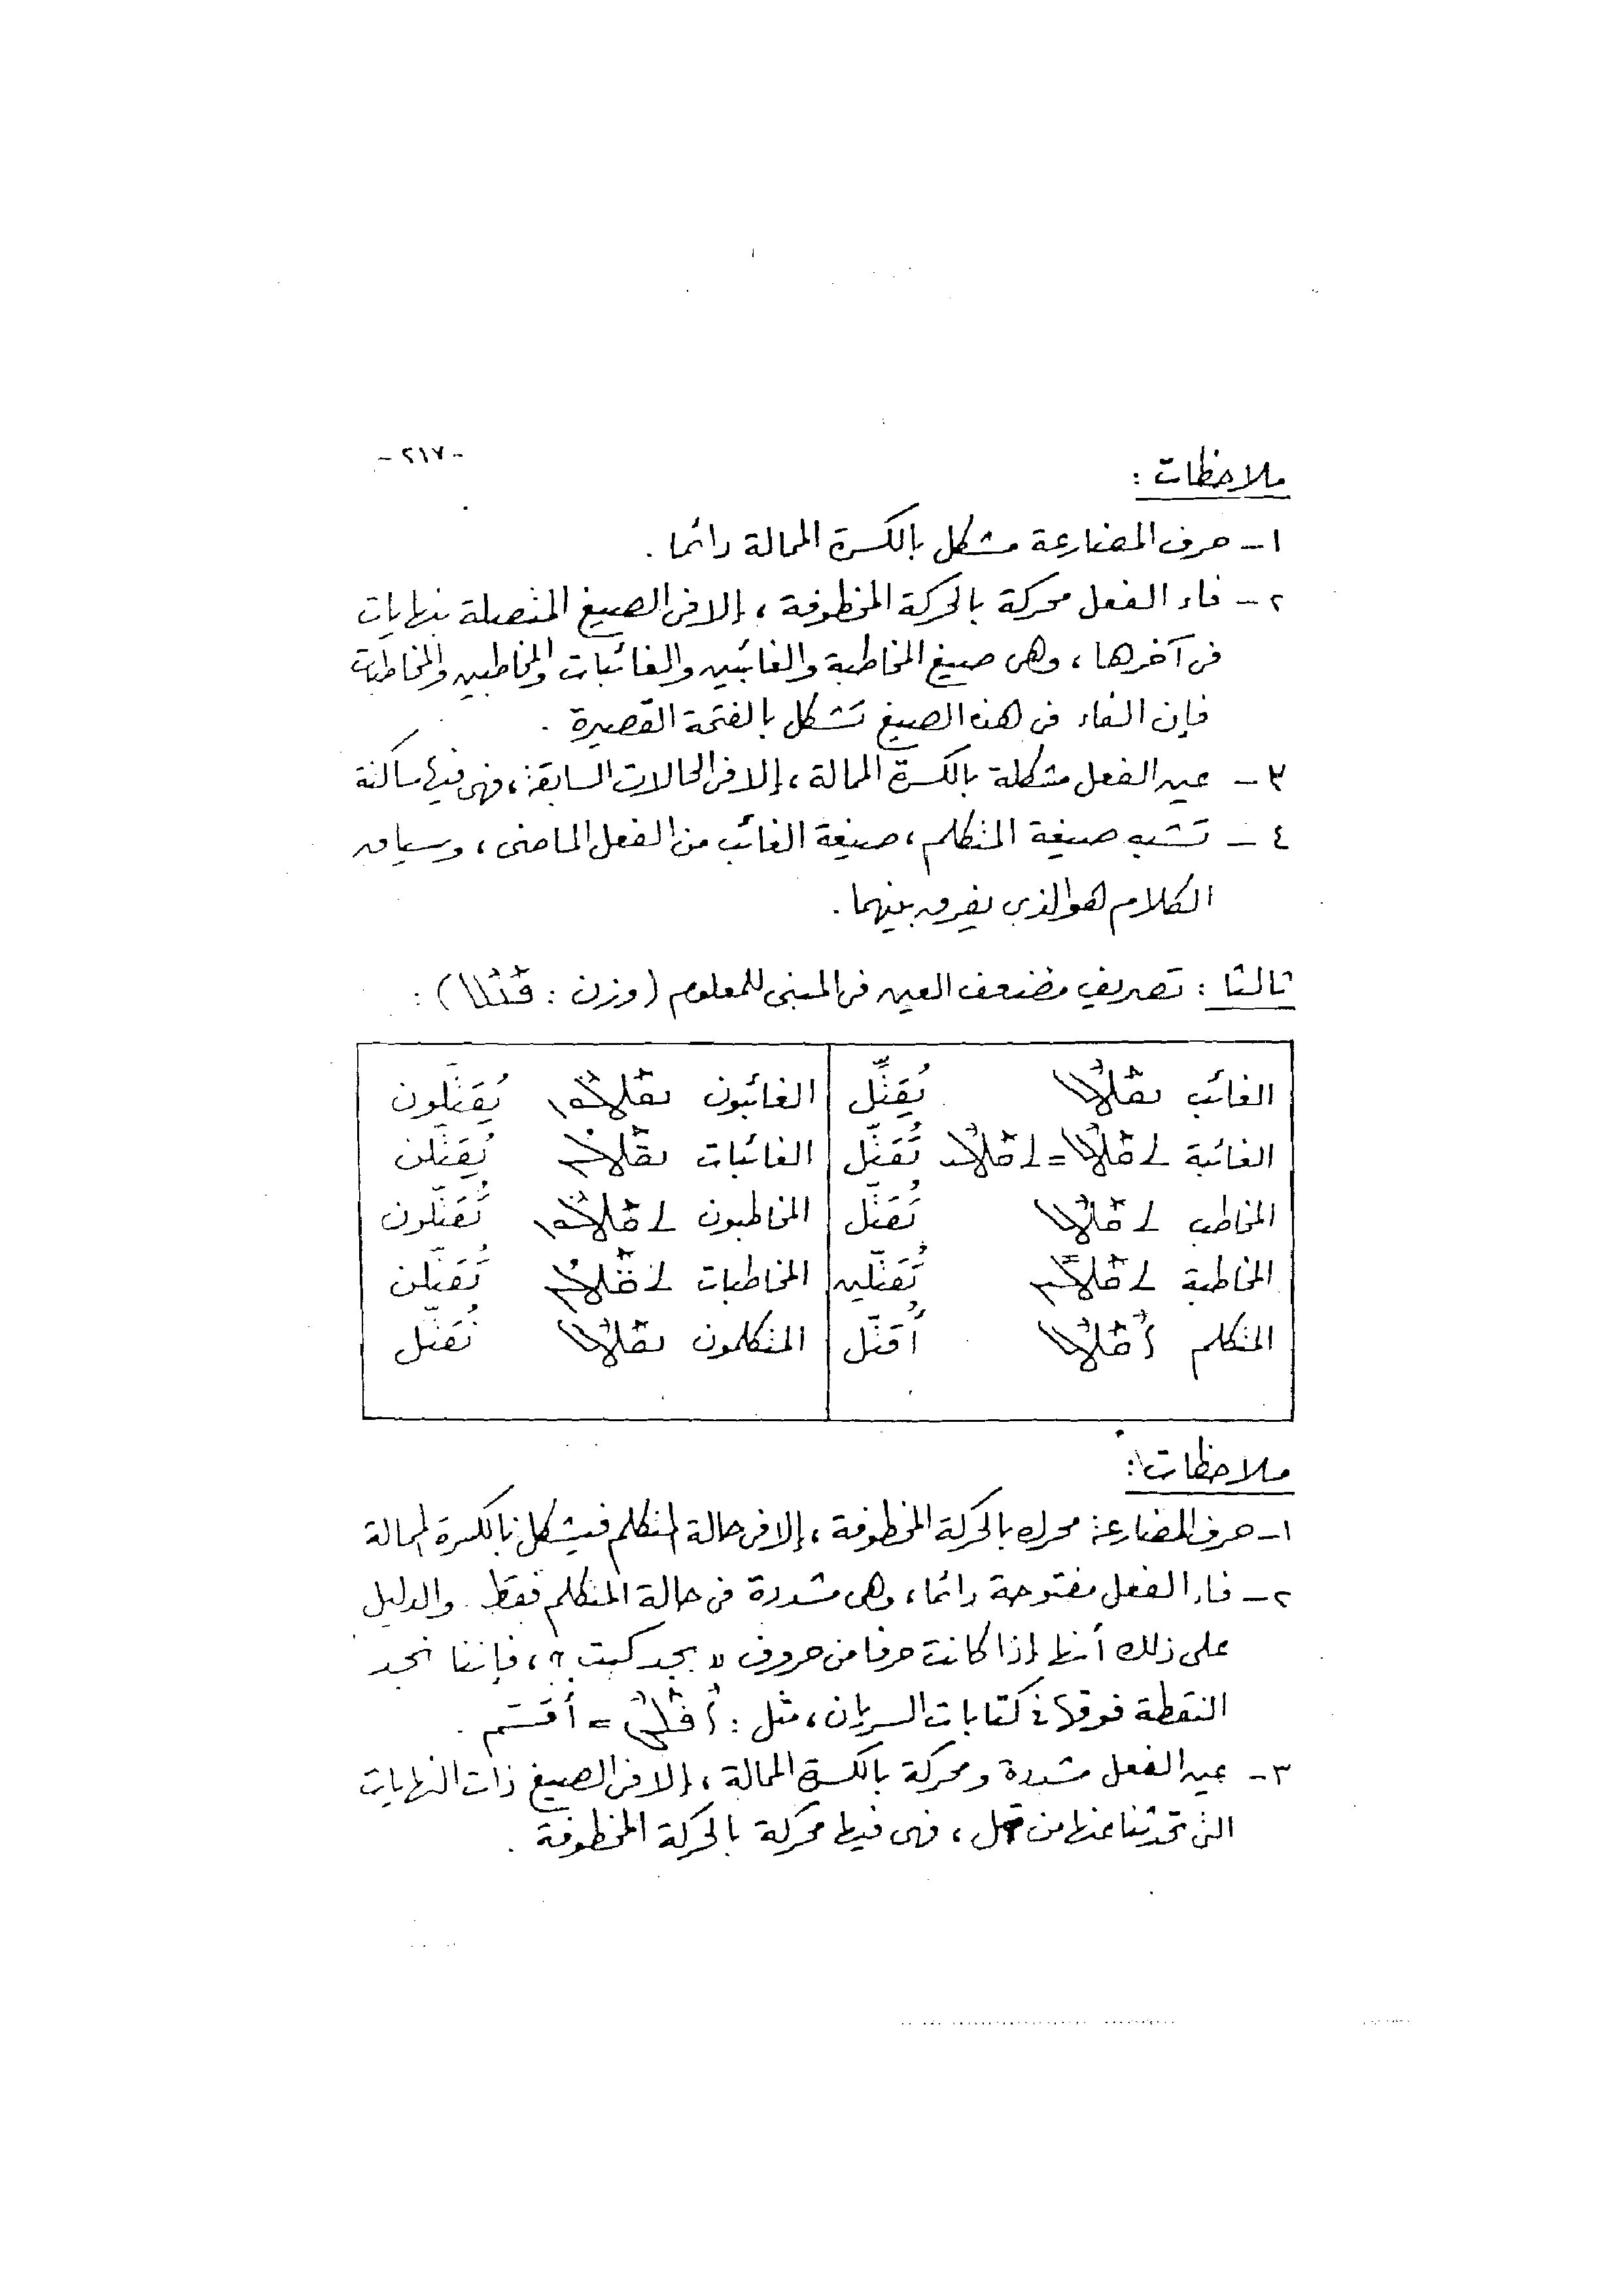 - ٢١٧ -
ملاحظات :
١ - حرف المضارعة مشكل بالكسرة الممالة دائما .
٢ - فاء الفعل محركة بالحركة المخطوفة ، إلا فى الصيغ المتصلة بنهايات
فى آخرها ، وهى صيغ المخاطبة والغائبين والغائبات والمخاطبين والمخاطبات
فإن الفاء فى هذه الصيغ تشكل بالفتحة القصيرة .
٣ - عين الفعل مشكلة بالكسرة الممالة ، إلا فى الحالات السابقة ، فهى فيها ساكنة
٤ - تشبه صيغة المتكلم ، صيغة الغائب من الفعل الماضى ، وسياق
الكلام هو الذى يفرق بينهما .
ثالثا : تصريف مضعف العين فى المبنى للمعلوم ( وزن : ) :
الغائب يُقَتِّل الغائبون يُقَتِّلون
الغائبة = تُقَتِّل الغائبات يُقَتِّلن
المخاطب تُقَتِّل المخاطبون تُقَتِّلون
المخاطبة تُقَتِّلين المخاطبات تُقَتِّلن
المتكلم أُقَتِّل المتكلمون نُقَتِّل
ملاحظات :
١ - حرف المضارعة محرك بالحركة المخطوفة ، إلا فى حالة المتكلم فيشكل بالكسرة الممالة
٢ - فاء الفعل مفتوحة دائما ، وهى مشددة فى حالة المتكلم فقط . والدليل
على ذلك أنها إذا كانت حرفا من حروف " بجد كبت " ، فإننا نجد
النقطة فوقها فى كتابات السريان ، مثل : = أقسّم .
٣ - عين الفعل مشددة ومحركة بالكسرة الممالة ، إلا فى الصيغ ذات النهايات
التى تحدثنا عنها من قبل ، فهى فيها محركة بالحركة المخطوفة .